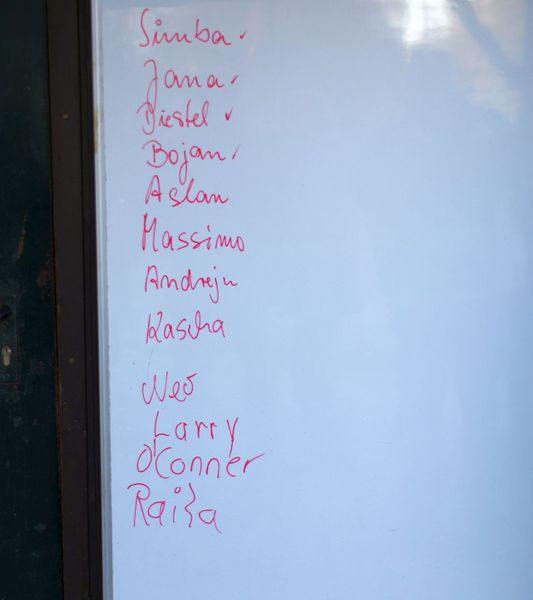 Simba ✓
Jana ✓
Biestel ✓
Bojan ✓
Aslan
Massimo
Andreju
Kascha
Neo
Larry
O'Conner
Raiža